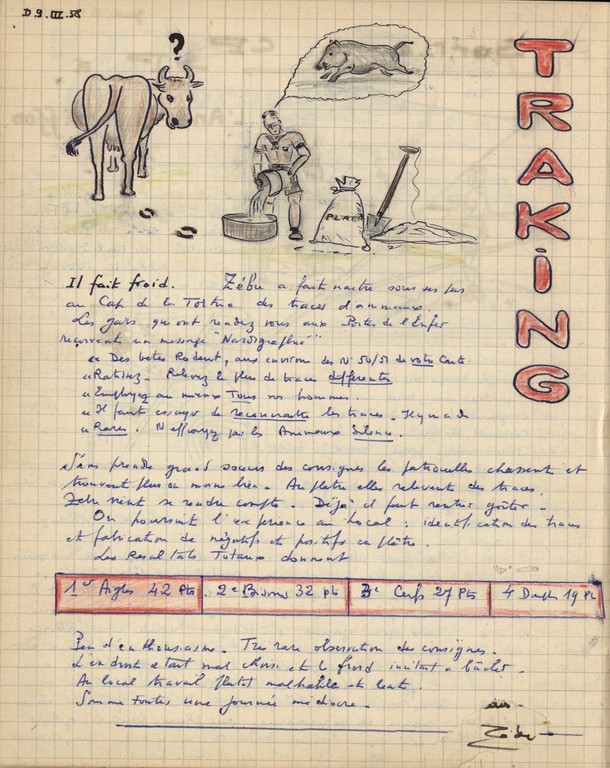 D 9.III.58
?
TRAKING
PLATRE
Il fait froid. Zébu a fait naitre sous ses pas
au Cap de la Tortue des traces d'animaux.
Les gars qui ont rendez vous aux Portes de l'Enfer
reçoivent un message
"Des betes Rodent, aux environs des N° 50/51 de votre Carte.
"Ratissez - Relevez le plus de traces differentes
"Employez au mieux Tous vos hommes.
"Il faut essayer de reconnaitre les traces. Il y en a de
"Rares. N'effrayez pas les Animaux Silence.
Sans prendre grand soucis des consignes les patrouilles chassent et
trouvent plus ou moins bien. Au platre elles relevent des traces.
Zebu vient se rendre compte. Déjà il faut rentrer goûter.
On poursuit l'experience au local : identification des traces
et fabrication de négatifs et positifs en plâtre.
Les Resultats Totaux donnent
1er Aigles 42 Pts 2e Bisons 32 pts 3e Cerfs 27 Pts 4 Daughs 19 Pts
Peu d'enthousiasme. Tres rare observation des consignes.
L'endroit etait mal choisi et le froid incitait a bâcler.
Au local travail plutot malhabile et lent.
Somme toutes une journée médiocre.
Zébu